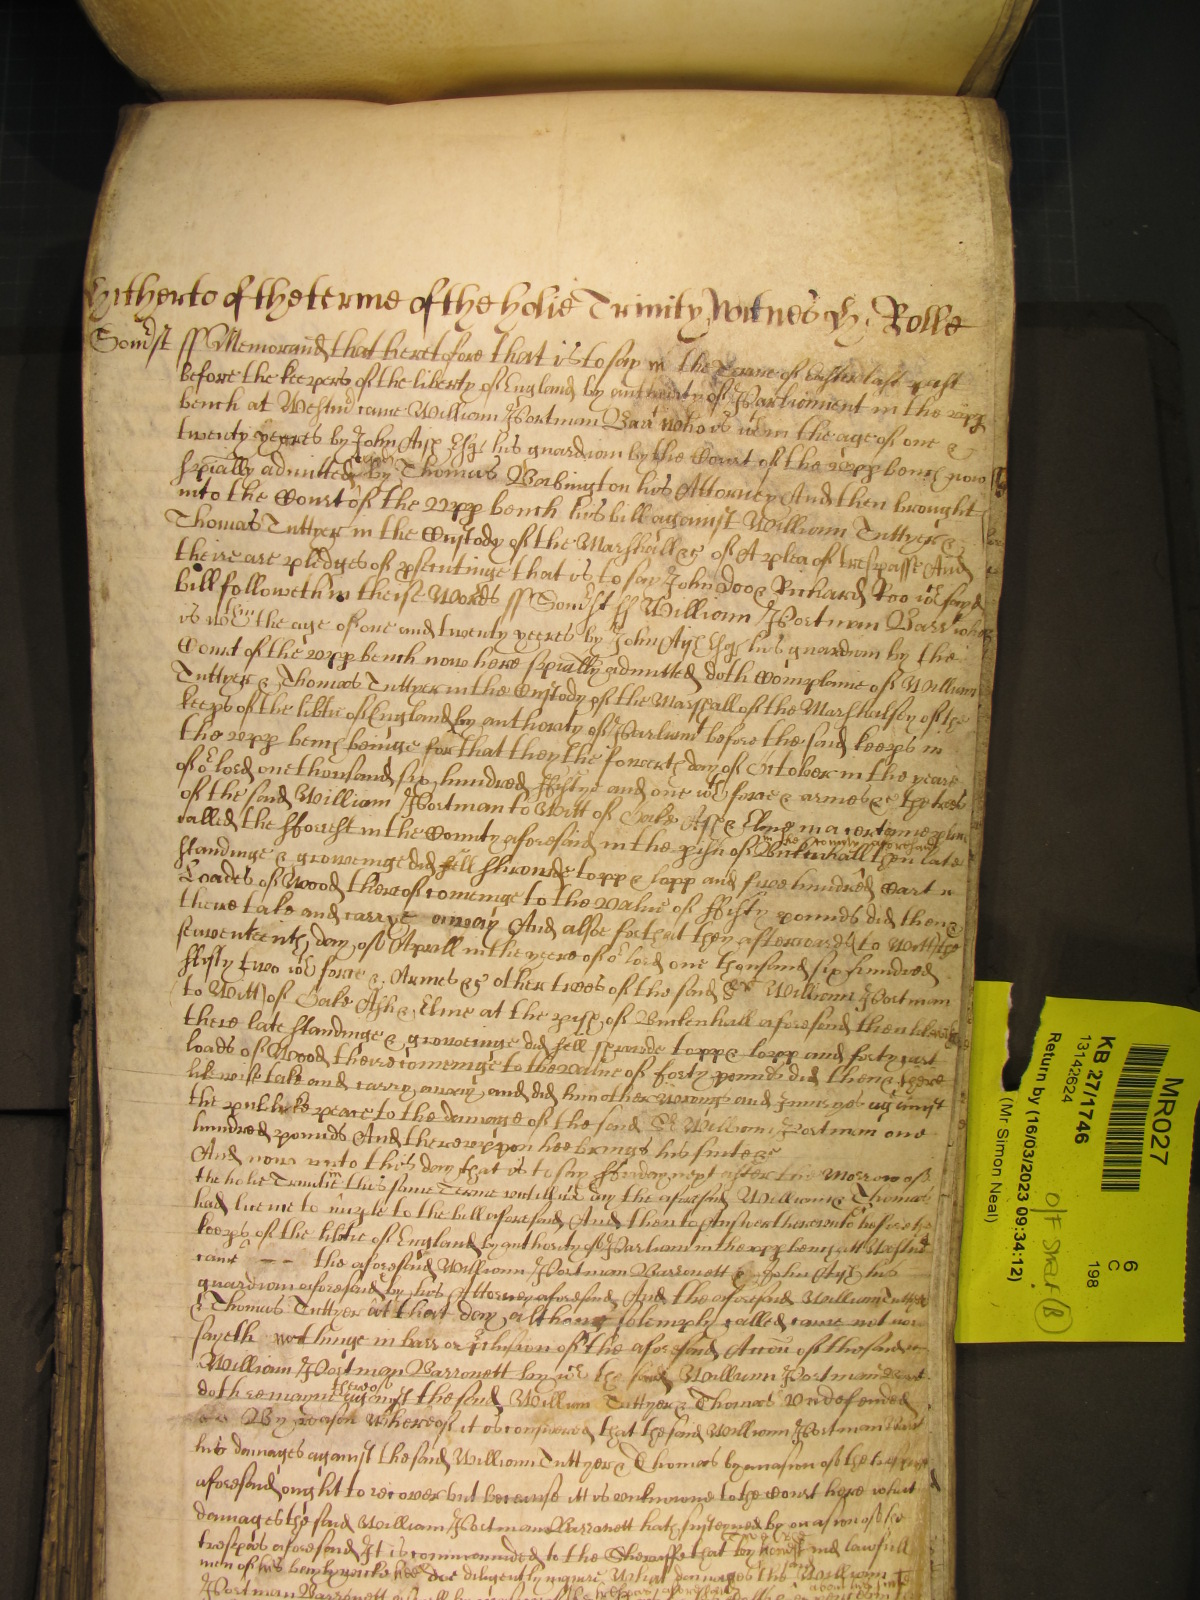 Hitherto of the terme of the holie Trinity Witnes H: Rolle
Somst ss Memorand that heretofore that is to say in the Terme of Easter last past
before the keepers of the liberty of England by authority of Parliament in the upp
bench at Westm came William Portman Barr who is wthin the age of one &
twenty yeeres by John Ash Esqr his guardian by the Court of the upp bench now
specially admitted by Thomas Babington his Attorney And then brought
into the Court of the upp bench his bill against William Tuttyer &
Thomas Tuttyer in the Custody of the Marshall &c of A plea of trespasse And
theire are pledges of psecutinge that is to say John Doo & Richard Roo wch said
bill followeth in theise Words ss Somst ss William Portman Barr who
is wthin the age of one and twenty yeeres by John Ash Esqr his guardian by the
Court of the upp bench now here specially admitted doth Complaine of William
Tuttyer & Thomas Tuttyer in the Custody of the Marshall of the Marshalsey of the
keeps of the libtie of England by authority of Parliamt before the said keeps in
the upp bench beinge for that they the fowerth day of October in the yeare
of or lord one thousand six hundred fiftye and one wth force & armes &c the trees
of the said William Portman to Witt of Oake Ash & Elme in a certeine place
called the fforest in the County aforesaid in the pish of
standinge & groweinge did fell shroude topp & lopp and five hundred Cart
Loades of Wood thereof comeinge to the value of ffifty pounds did then &
there take and carrye away And alsoe for that they afterwards to Witt the
seaventeenth day of Aprill in the yeere of or lord one thousand six hundred
ffifty two wth force & Armes &c other trees of the said Sr William Portman
(to Witt) of Oake Ash & Elme at the pish of aforesaid then likewise
there late standinge & groweinge did fell shroude topp & lopp and forty cart
loads of Wood there comeinge to the value of forty pounds did then & there
likewise take and carry away and did him other wrongs and Injuryes against
the publike peace to the damage of the said Sr William Portman one
hundred pounds And thereuppon hee brings his suite &c
And now unto this day that is to say ffriday next after the Morrow of
the holie Trinitie this same Terme untill wch day the aforesaid William & Thomas
had licence to imple to the bill aforesaid And then to Answer thereunto before the
keeps of the libtie of England by authority of Parliam in the upp bench att Westm
came -- the aforesaid William Portman Barronett & John Ash his
guardian aforesaid by his Attorney aforesaid And the aforesaid William Tuttyer
& Thomas Tuttyer at that day although solemply called came not nor
sayeth nothinge in barr or pclusion of the aforesaid Accon of the said
William Portman Barronett by wch the said William Portman
doth remayne therof against the said William Tuttyer & Thomas Undefended
By reason Whereof it is considered that the said William Portman
his damages against the said William Tuttyer & Thomas by occasion of the trespas
aforesaid ought to recover but because itt is unknowne to the Court here what
damages the said William Portman Barronett hath susteyned by occasion of the
trespas aforesaid It is commaunded to the Sheriffe that by honest and lawfull
men of his baylywicke hee doe diligently inquire What damages the William
Portman Barronett